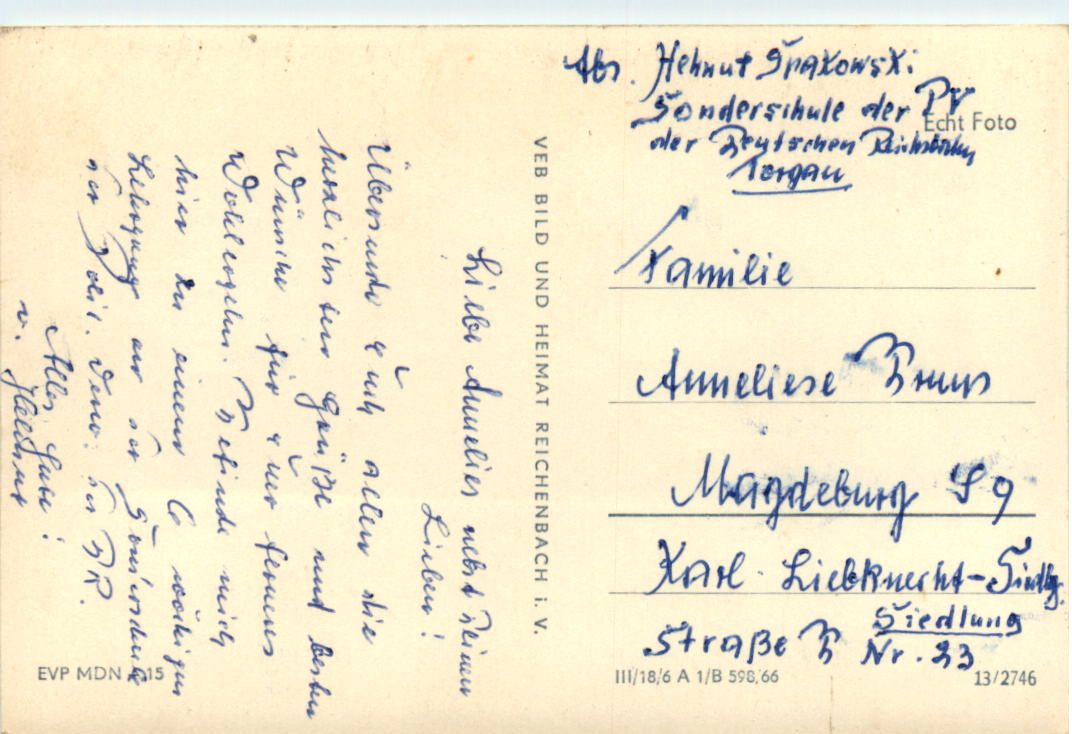 Abs. Helmut
Sonderschule der PV
der Deutschen Reichsbahn
Torgau
Echt Foto
Familie
Anneliese
Magdeburg S 9
Karl-Liebknecht-Siedlg.
Siedlung
Straße B Nr. 33
VEB BILD UND HEIMAT REICHENBACH i. V.
Liebe Annelies nebst Deinen
Lieben!
Übersende Euch allen die
herzlichsten Grüße und besten
Wünsche für Euer ferneres
Wohlergehen. Befinde mich
hier zu einem 6 wöchigen
Lehrgang an der Sonderschule
der Polit. der DR.
Alles Gute!
v. Helmut
EVP MDN 15
III/18/6 A 1/B 598/66
13/2746